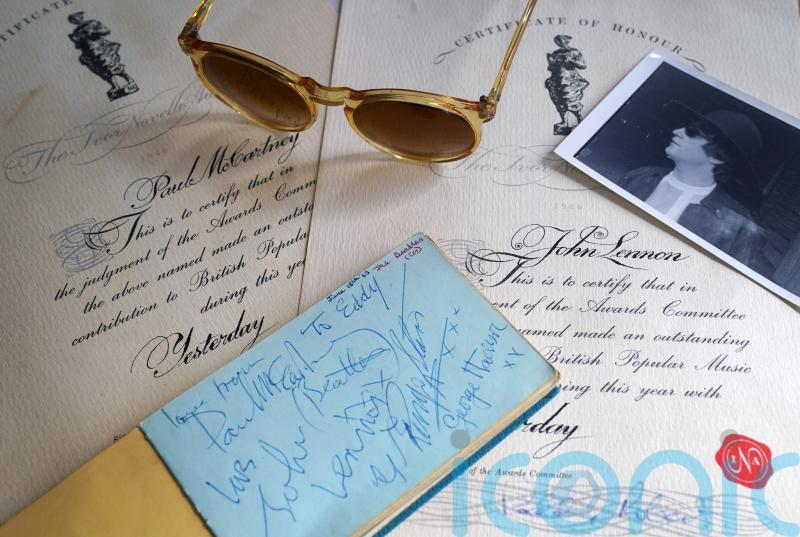 CERTIFICATE
The Ivor Novello
1966
Paul McCartney
This is to certify that in
the judgment of the Awards Comm
the above named made an outsta
contribution to British Popula
during this ye
Yesterday
CERTIFICATE OF HONOUR
The Ivor
1966
John Lennon
This is to certify that in
ent of the Awards Committee
named made an outstanding
British Popular Music
ing this year with
rday
of the Awards Committee
INA
The Beatles
To Eddy
love from
Paul McCartney
(Beatles)
love
John
Lennon
Ringo Starr
xxx
George Harrison
xx
iconic